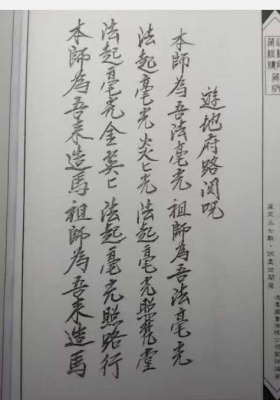 遊地府路関咒
本師為吾法毫光祖師為吾法毫光
法起毫光炎匕光法起毫光照龍堂
法起毫光金英匕法起毫光照路行
本師為吾來造馬祖師為吾來造馬